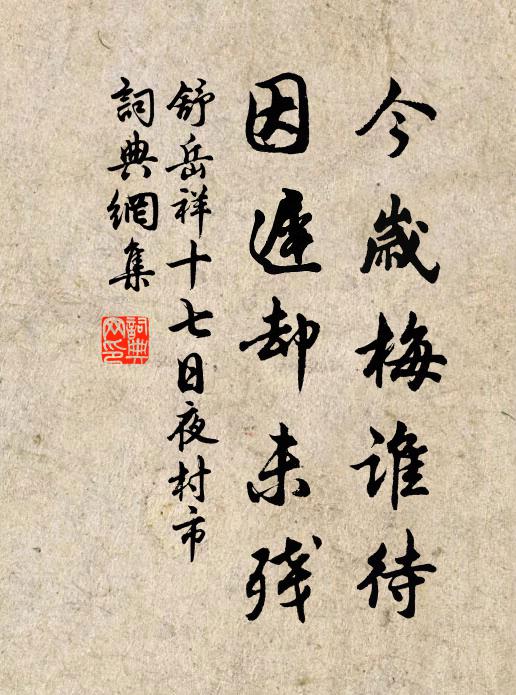 今歲梅誰待
因遲却未殘
舒岳祥十七日夜村市
詞典網集
詞典网印